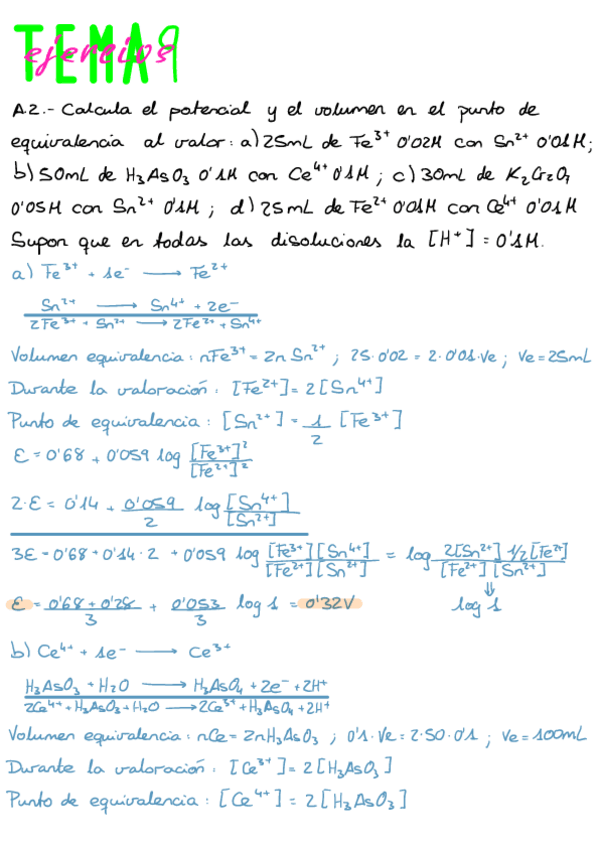 TEMA 9
ejercicios
A.2.- Calcula el potencial y el volumen en el punto de
equivalencia al valor: a) 25mL de Fe³⁺ 0'02M con Sn²⁺ 0'01M;
b) 50mL de H₃AsO₃ 0'1M con Ce⁴⁺ 0'1M; c) 30mL de K₂Cr₂O₇
0'05M con Sn²⁺ 0'1M; d) 25mL de Fe²⁺ 0'01M con Ce⁴⁺ 0'01M
Supon que en todas las disoluciones la [H⁺] = 0'1M.
a) Fe³⁺ + 1e⁻ ⟶ Fe²⁺
Sn²⁺ ⟶ Sn⁴⁺ + 2e⁻
2Fe³⁺ + Sn²⁺ ⟶ 2Fe²⁺ + Sn⁴⁺
Volumen equivalencia: nFe³⁺ = 2n Sn²⁺ ; 25·0'02 = 2·0'01·Ve ; Ve = 25mL
Durante la valoración: [Fe²⁺] = 2[Sn⁴⁺]
Punto de equivalencia: [Sn²⁺] = 1/2 [Fe³⁺]
E = 0'68 + 0'059 log [Fe³⁺]²/[Fe²⁺]²
2·E = 0'14 + 0'059/2 log [Sn⁴⁺]/[Sn²⁺]
3E = 0'68 + 0'14·2 + 0'059 log [Fe³⁺][Sn⁴⁺]/[Fe²⁺][Sn²⁺] = log 2[Sn²⁺] 1/2[Fe²⁺]/[Fe²⁺][Sn²⁺]
⇓
E = 0'68 + 0'28/3 + 0'053/3 log 1 = 0'32V log 1
b) Ce⁴⁺ + 1e⁻ ⟶ Ce³⁺
H₃AsO₃ + H₂O ⟶ H₃AsO₄ + 2e⁻ + 2H⁺
2Ce⁴⁺ + H₃AsO₃ + H₂O ⟶ 2Ce³⁺ + H₃AsO₄ + 2H⁺
Volumen equivalencia: nCe = 2nH₃AsO₃ ; 0'1·Ve = 2·50·0'1 ; Ve = 100mL
Durante la valoración: [Ce³⁺] = 2[H₃AsO₃]
Punto de equivalencia: [Ce⁴⁺] = 2[H₃AsO₃]